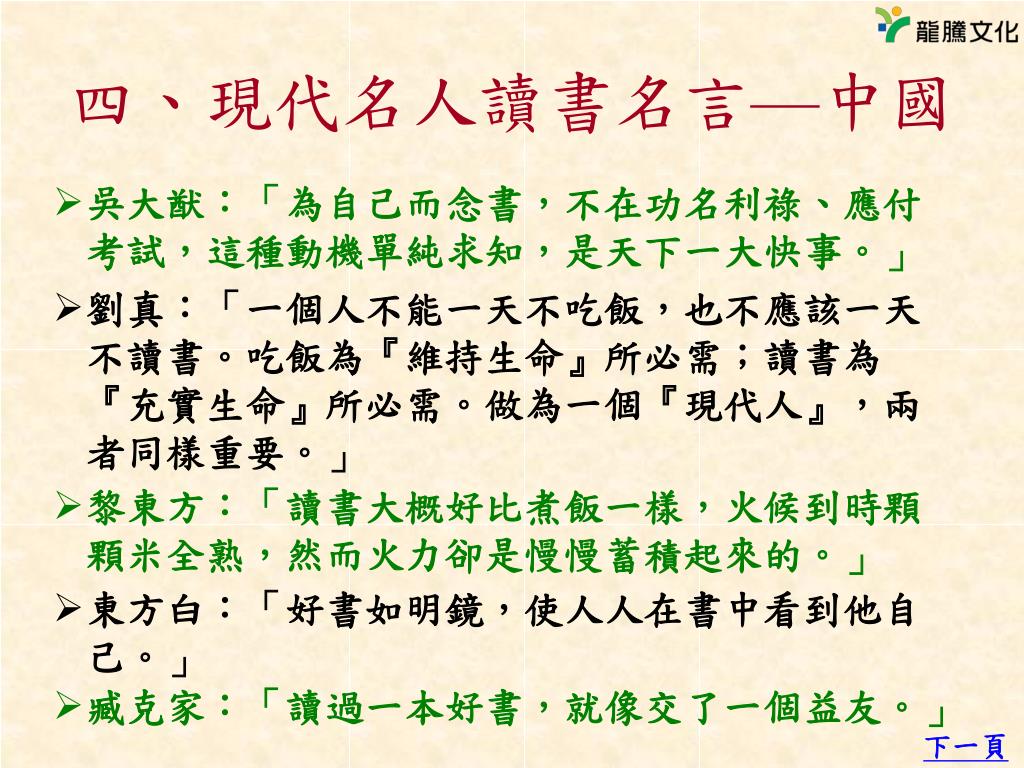 龍騰文化
四、現代名人讀書名言—中國
➢吳大猷：「為自己而念書，不在功名利祿、應付
考試，這種動機單純求知，是天下一大快事。」
➢劉真：「一個人不能一天不吃飯，也不應該一天
不讀書。吃飯為『維持生命』所必需；讀書為
『充實生命』所必需。做為一個『現代人』，兩
者同樣重要。」
➢黎東方：「讀書大概好比煮飯一樣，火候到時顆
顆米全熟，然而火力卻是慢慢蓄積起來的。」
➢東方白：「好書如明鏡，使人人在書中看到他自
己。」
➢臧克家：「讀過一本好書，就像交了一個益友。」
下一頁